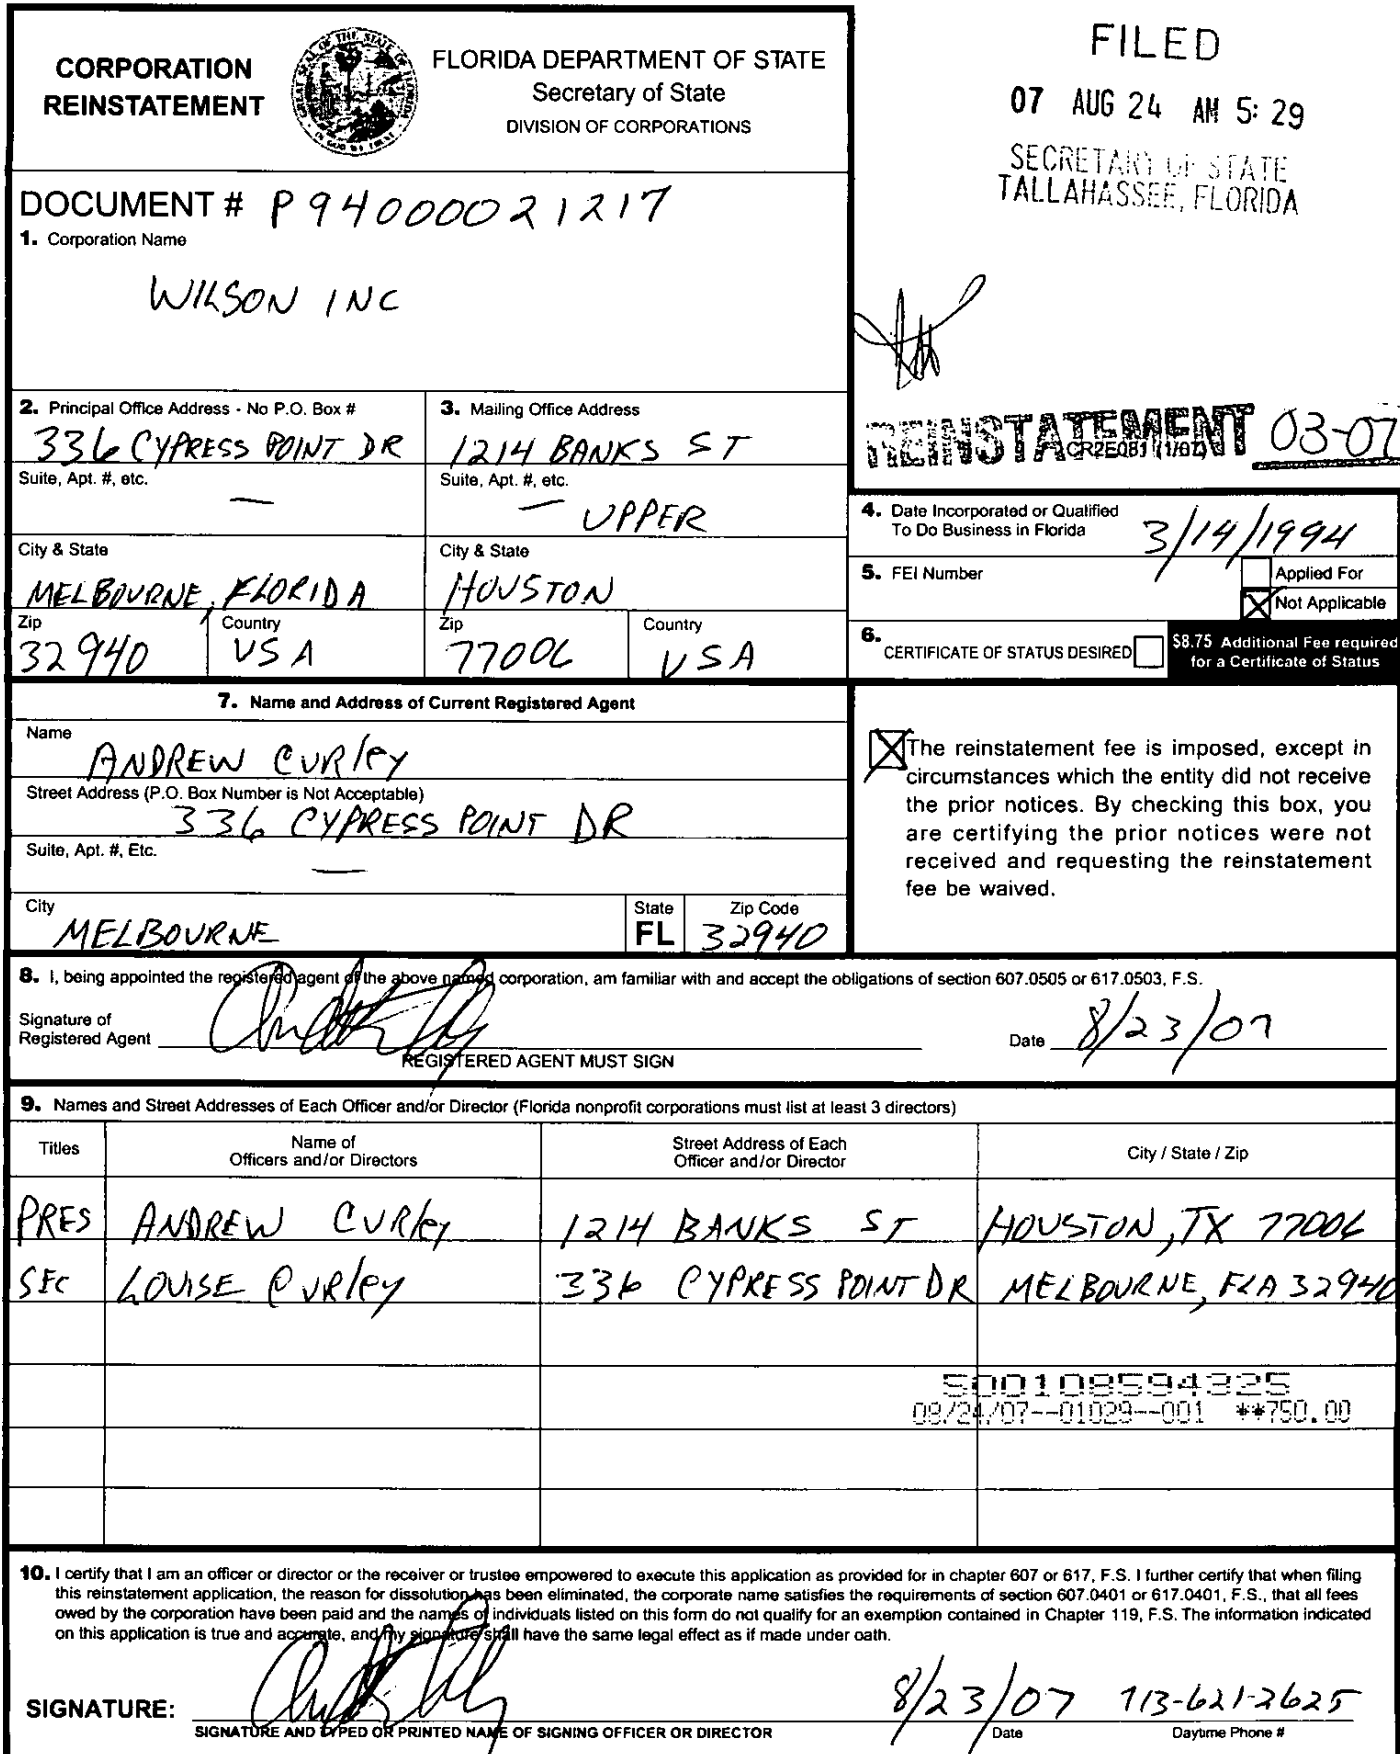 CORPORATION
REINSTATEMENT
FLORIDA DEPARTMENT OF STATE
Secretary of State
DIVISION OF CORPORATIONS
FILED
07 AUG 24 AM 5: 29
SECRETARY OF STATE
TALLAHASSEE, FLORIDA
DOCUMENT # P94000021217
1. Corporation Name
WILSON INC
2. Principal Office Address - No P.O. Box #
336 CYPRESS POINT DR
3. Mailing Office Address
1214 BANKS ST
Suite, Apt. #, etc.
—
Suite, Apt. #, etc.
— UPPER
City & State
MELBOURNE, FLORIDA
City & State
HOUSTON
Zip
32940
Country
USA
Zip
77006
Country
USA
REINSTATEMENT 03-07
CR2E081 (1/07)
4. Date Incorporated or Qualified
To Do Business in Florida
3/14/1994
5. FEI Number
Applied For
Not Applicable
6. CERTIFICATE OF STATUS DESIRED
$8.75 Additional Fee required
for a Certificate of Status
7. Name and Address of Current Registered Agent
Name
ANDREW CURley
Street Address (P.O. Box Number is Not Acceptable)
336 CYPRESS POINT DR
Suite, Apt. #, Etc.
—
City
MELBOURNE
State
FL
Zip Code
32940
The reinstatement fee is imposed, except in
circumstances which the entity did not receive
the prior notices. By checking this box, you
are certifying the prior notices were not
received and requesting the reinstatement
fee be waived.
8. I, being appointed the registered agent of the above named corporation, am familiar with and accept the obligations of section 607.0505 or 617.0503, F.S.
Signature of
Registered Agent
REGISTERED AGENT MUST SIGN
Date 8/23/07
9. Names and Street Addresses of Each Officer and/or Director (Florida nonprofit corporations must list at least 3 directors)
Titles
Name of
Officers and/or Directors
Street Address of Each
Officer and/or Director
City / State / Zip
PRES ANDREW CURley 1214 BANKS ST HOUSTON, TX 77006
SEC LOUISE CURley 336 CYPRESS POINT DR MELBOURNE, FLA 32940
500108594325
08/24/07--01029--001 **750.00
10. I certify that I am an officer or director or the receiver or trustee empowered to execute this application as provided for in chapter 607 or 617, F.S. I further certify that when filing
this reinstatement application, the reason for dissolution has been eliminated, the corporate name satisfies the requirements of section 607.0401 or 617.0401, F.S., that all fees
owed by the corporation have been paid and the names of individuals listed on this form do not qualify for an exemption contained in Chapter 119, F.S. The information indicated
on this application is true and accurate, and my signature shall have the same legal effect as if made under oath.
SIGNATURE:
8/23/07 713-621-2625
SIGNATURE AND TYPED OR PRINTED NAME OF SIGNING OFFICER OR DIRECTOR
Date
Daytime Phone #